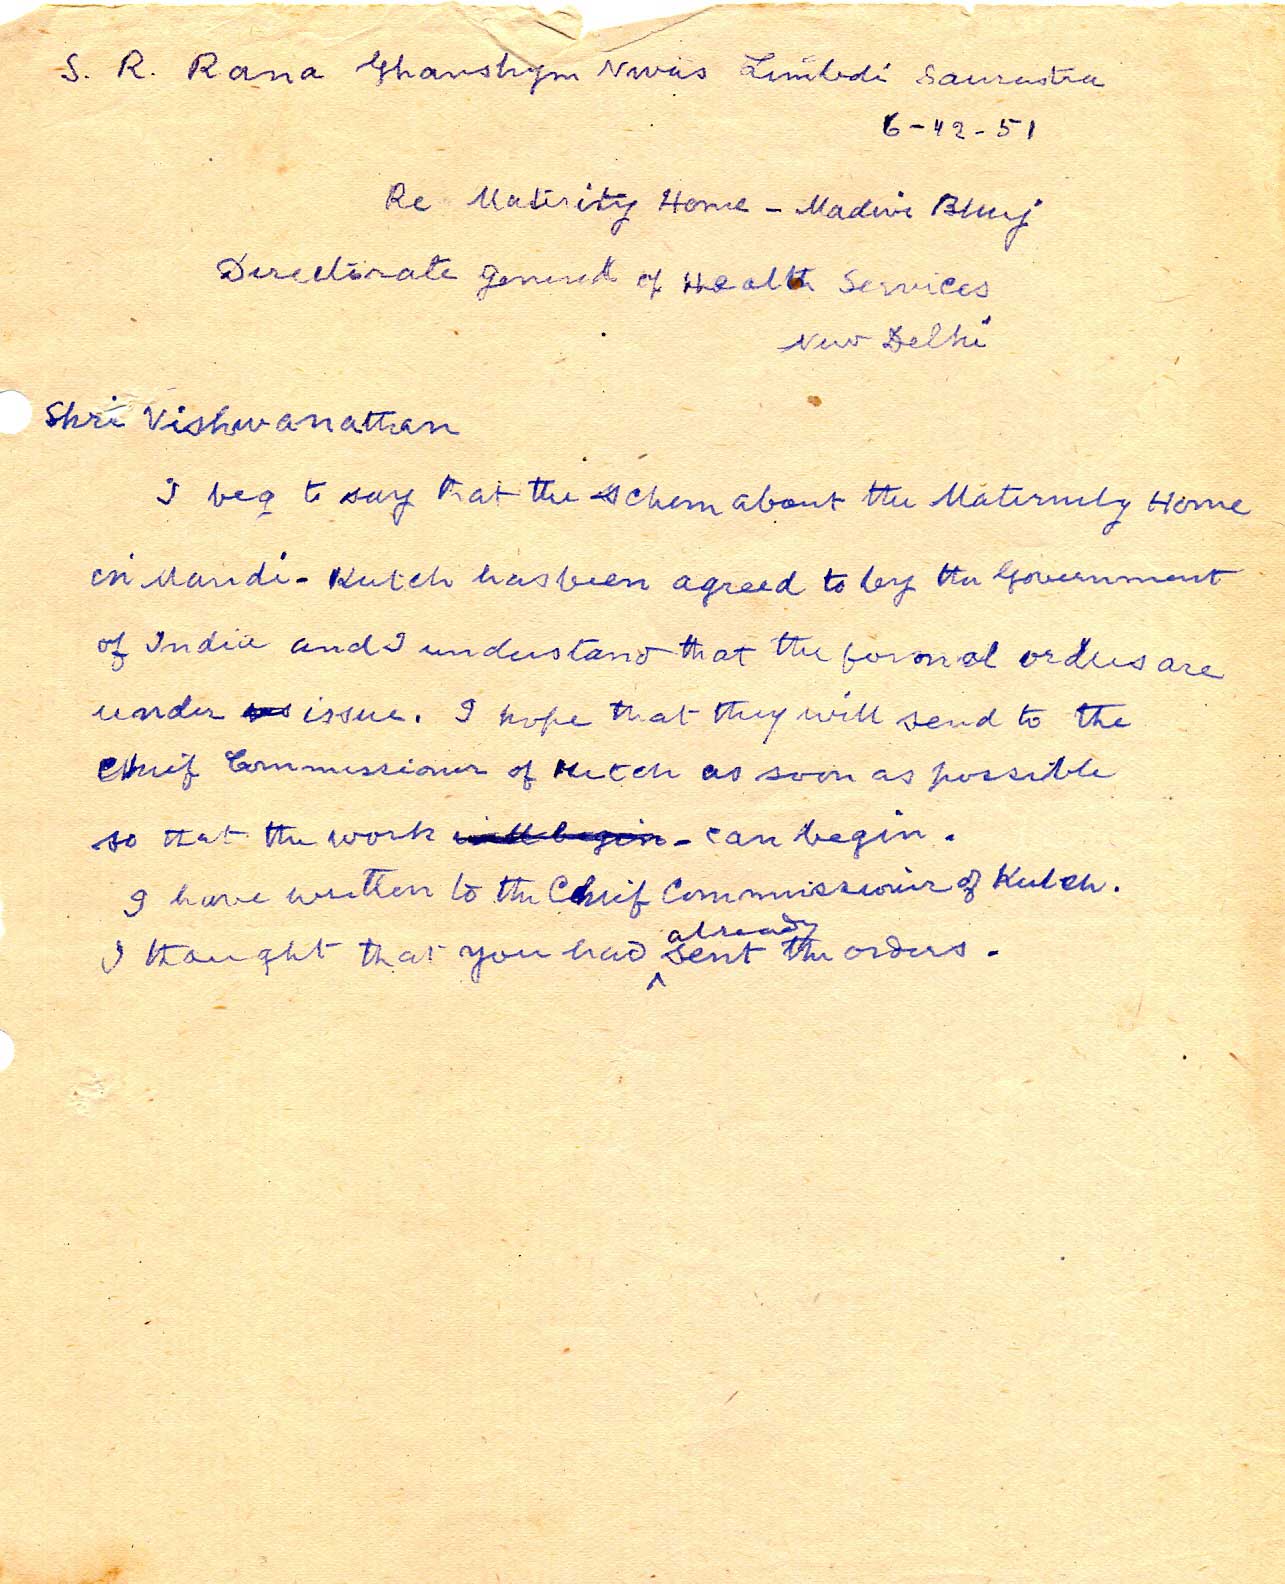 S. R. Rana Ghanshym Nwas Limbdi Saurastra
6-42-51
Re Matirity Home - Madwi Bhuj
Directorate General of Health Services
New Delhi
Shri Vishwanathan
I beg to say that the schem about the Maternity Home
in Mandi - Kutch has been agreed to by the Government
of India and I understand that the formal orders are
under issue. I hope that they will send to the
Chief Commissioner of Kutch as soon as possible
so that the work will begin - can begin.
I have written to the Chief Commissioner of Kutch.
already
I thought that you had sent the orders.